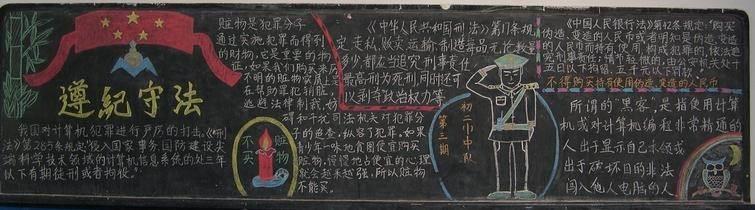 遵纪守法
我国对计算机犯罪进行严厉的打击。《刑
法》第285条规定“侵入国家事务、国防建设、尖
端科学技术领域的计算机信息系统的处三年
以下有期徒刑或者拘役。”
赃物是犯罪分子
通过实施犯罪而得利
的财物,它是重要的物
证。如果我们购买来历
不明的赃物实质上是
在帮助罪犯销赃,
逃避法律制裁,妨
碍和干扰司法机关对犯罪分
子的追查,纵容了犯罪。如果
青少年一味地贪图便宜购买
赃物,慢慢地占便宜的心理
就会越来越强,所以赃物
不能买。
不买
赃物
《中华人民共和国刑法》第
条规
定走私、贩卖、运输、制造毒品,无论数量
多少,都应当追究刑事责任,
最高刑为死刑,同时还可
以剥夺政治权力等。
初二
中队
第三期
《中国人民银行法》第42条规定:“购买
伪造、变造的人民币或者明知是伪造、变造
的人民币而持有、使用,构成犯罪的,依法追
究刑事责任;情节轻微的,由公安机关处十
五日以下拘留、
不得购买持有使用伪造、变造的人民币
所谓的“黑客”,是指使用计算
机或对计算机编程非常精通的
人出于显示自己本领或
出于破坏目的非法
闯入他人电脑的人